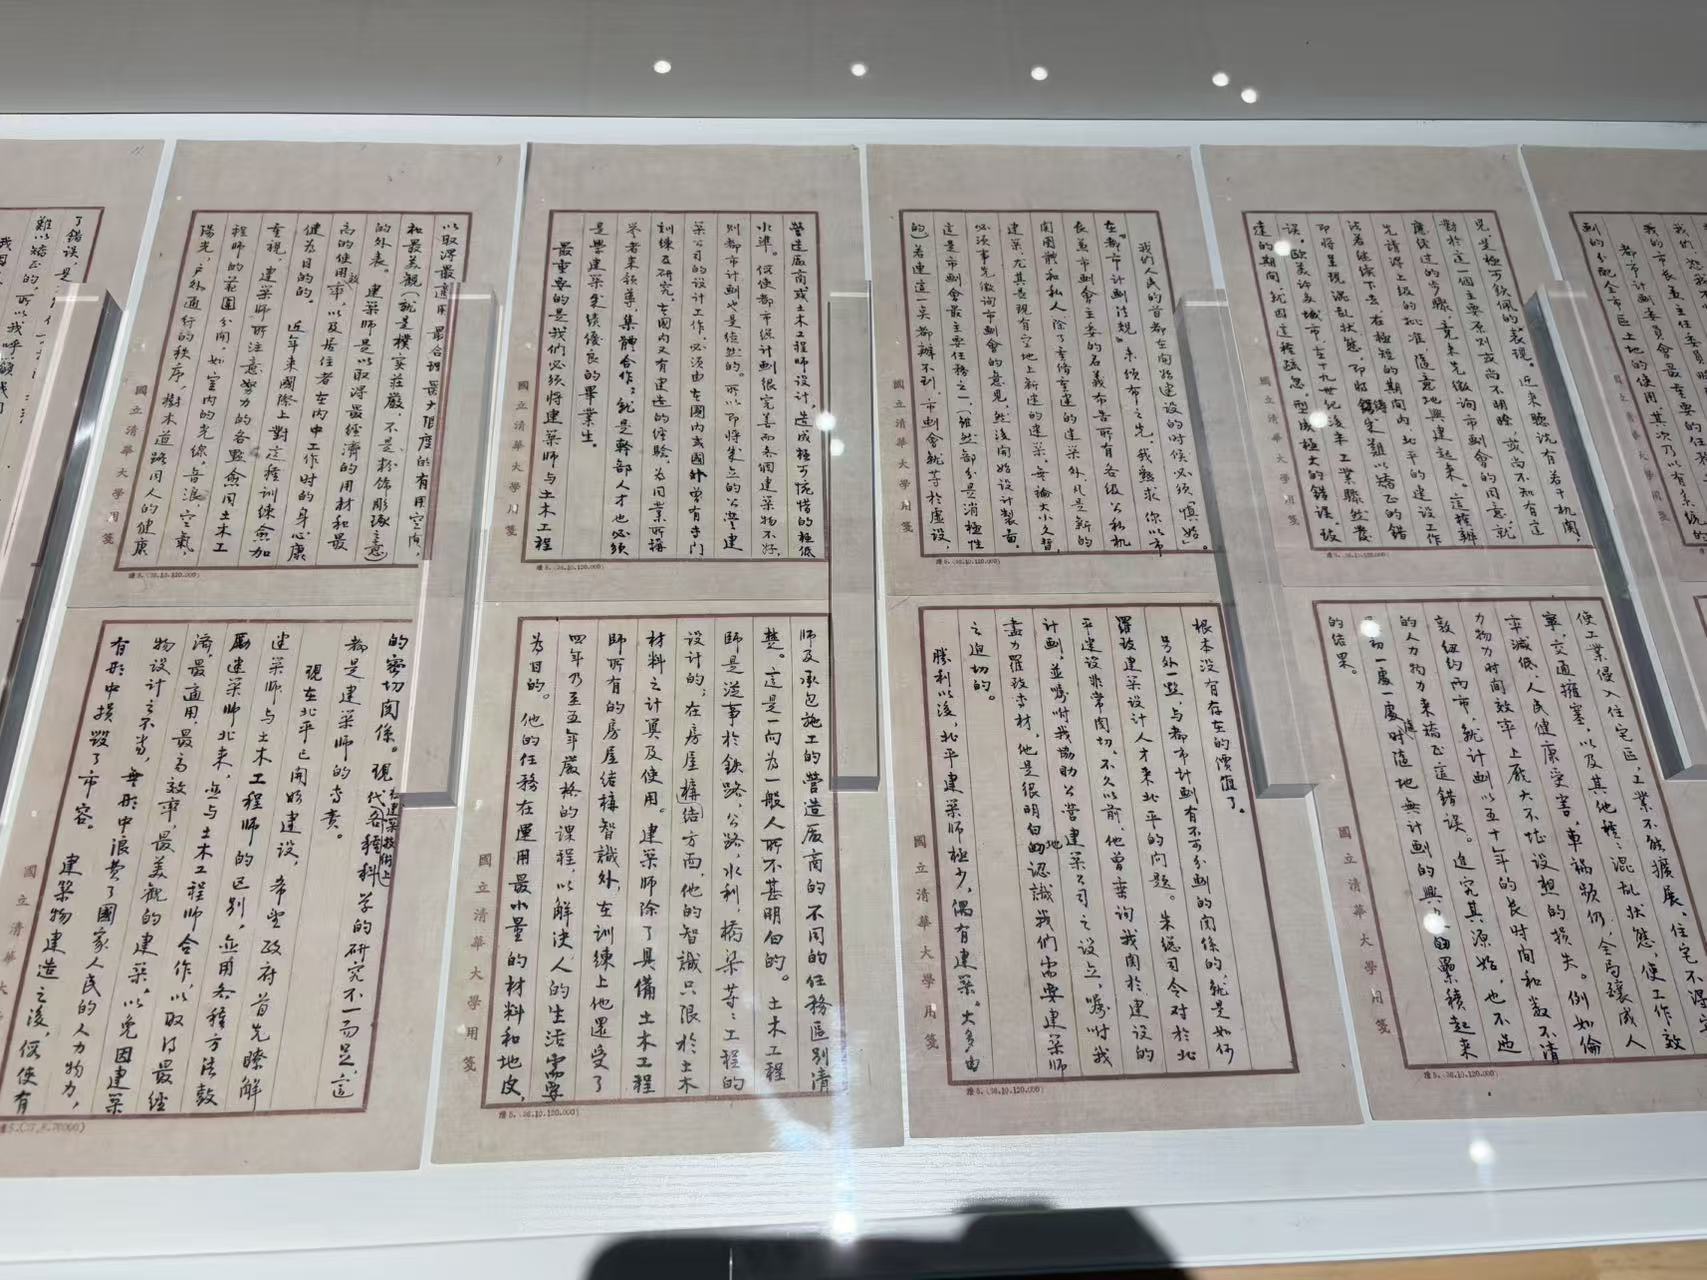 都市計劃委員會最重要的任務
劃的分配全市區土地的使用,其次乃以有系統的
國立清華大學用箋
見,是極可欽佩的表現。近來聽說有若干机関,
對於這一個主要原則或尚不明瞭,或尚不知有這
應經過的步驟,竟未先徵詢市劃會的同意,就
先請得上級的批准,隨意地興建起來。這種辦
法若継续下去,在極短的期间內,北平的建設工作
即將呈現混乱狀態,即將鑄成難以矯正的錯
誤。欧美许多城市,在十九世纪後半工業驟然發
達的期间,就因這種疏忽,而鑄成極大的錯誤,致
國立清華大學用箋
使工業侵入住宅區,工業不能擴展,住宅不得安
寧,交通擁塞,以及其他種種混乱狀態,使工作效
率減低,人民健康受害,車禍频仍,全局釀成人
力物力時间效率上厖大不堪設想的損失。例如倫
敦纽约两市,就计画以五十年的长时间和数不清
的人力物力来矯正這错误。追究其源始,也不过
最初一處一處隨時隨地無计画的興建的累積起来
的结果。
國立清華大學用箋
我們人民的首都在開始建設的时候必须「慎始」。
在「都市计画法規」未頒布之先,我懇求你以市
長兼市劃會主委的名義布告所有各级公私机
関團體和私人,除了重修重建的建築外,凡是新的
建築,尤其是現有空地上新建的建築,無論大小久暫,
必须事先徵詢市劃會的意見,然後開始设计製畫。
這是市劃會最主要任務之一,(雖然部分是消極性
的)若連這一点都辦不到,市劃會就等於虛設,
國立清華大學用箋
根本没有存在的價值了。
另外一點,与都市计画有不可分割的関係的,就是如何
羅致建築设计人才来北平的问题。朱總司令对於北
平建设非常関切,不久以前,他曾垂询我関於建设的
计画,並囑咐我協助公營建築公司之设立,囑咐我
盡力羅致专材,他是很明白地認識我們需要建築师
之迫切的。
勝利以後,北平建築师極少,偶有建築。大多由
國立清華大學用箋
營造廠商或土木工程师设计,造成極可惋惜的極低
水準。假使都市计画很完善而各個建築物不好,
則都市计画也是徒然的。所以即将成立的公營建
築公司的设计工作,必须由在國内或國外曾有专门
訓练及研究,在國内又有建造的经驗,為同業所推
举者来領導,集體合作;就是幹部人才也必须
是学建築成绩優良的畢業生。
最重要的是我們必须将建築师与土木工程
國立清華大學用箋
师及承包施工的營造廠商的不同的任務區别清
楚。這是一向為一般人所不甚明白的。土木工程
师是從事於鉄路,公路,水利,橋梁等工程的
设计的;在房屋構造方面,他的智識只限於土木
材料之计算及使用。建築师除了具備土木工程
师所有的房屋结構智識外,在訓練上他還受了
四年乃至五年嚴格的课程,以解决人的生活需要
為目的。他的任務在運用最小量的材料和地皮,
國立清華大學用箋
以取得最適用,最合理,最大限度的有用空间,
和最美觀(就是樸实莊嚴,不是粉饰彫琢之意)
的外表。建築师是以取得最經濟的用材和最
高的使用效率,以及居住者在内中工作时的身心康
健为目的。近年来國際上對這種訓練愈加
重視,建築师所注意努力的各點愈同土木工
程师的范围分開,如室内的光缐,音浪,空氣,
陽光,户外通行的秩序,樹木道路同人的健康
國立清華大學用箋
的密切関係。現代各種科学的研究不一而足,這
在建築技術上
都是建築师的专責。
現在北平已開始建设,希望政府首先瞭解
建築师与土木工程师的区别,並用各種方法鼓
勵建築师北来,並与土木工程师合作,以取得最經
濟,最適用,最高效率,最美觀的建築。以免因建築
物设计之不当,無形中浪费了國家人民的人力物力,
有形中損毀了市容。建築物建造之後,假使有
國立清華大
了錯误,是
難以矯正的,所以我呼籲我